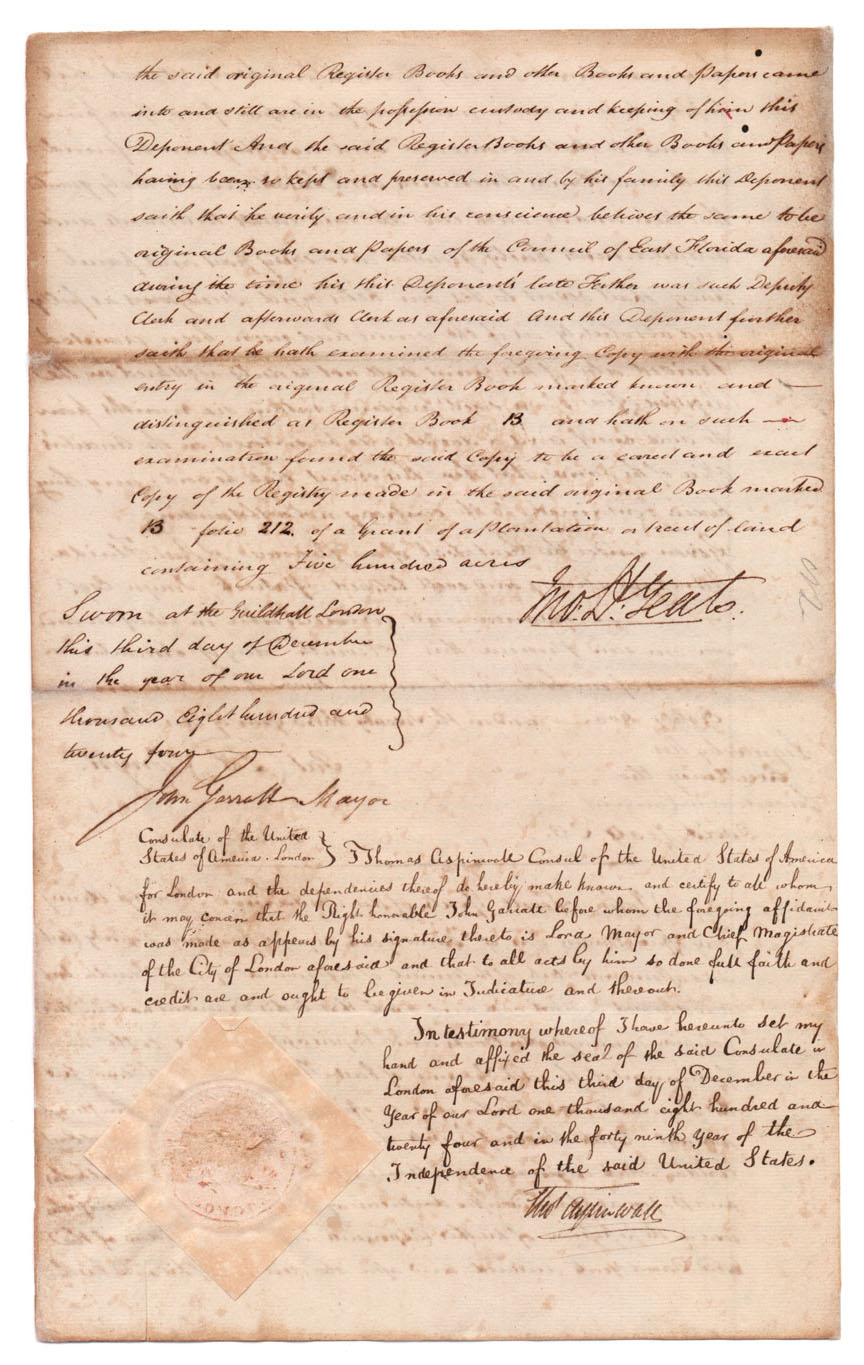 the said original Register Books and other Books and Papers came
into and still are in the possession custody and keeping of him this
Deponent And the said Register Books and other Books and Papers
having been so kept and preserved in and by his family this Deponent
saith that he verily and in his conscience believes the same to be
original Books and Papers of the Council of East Florida aforesaid
during the time his this Deponent's late Father was such Deputy
Clerk and afterwards Clerk as aforesaid And this Deponent further
saith that he hath examined the foregoing Copy with the original
entry in the original Register Book marked known and —
distinguished as Register Book B and hath on such —
examination found the said Copy to be a correct and exact
Copy of the Registry made in the said original Book marked
B folio 212. of a Grant of a Plantation or tract of land
containing Five hundred acres
Jno. D. Yeats.
Sworn at the Guildhall London
this third day of December
in the year of our Lord one
thousand Eight hundred and
twenty four
John Garratt Mayor
Consulate of the United
States of America. London } I Thomas Aspinwall Consul of the United States of America
for London and the dependencies thereof do hereby make known and certify to all whom
it may concern that the Right honorable John Garratt before whom the foregoing affidavit
was made as appears by his signature thereto is Lord Mayor and Chief Magistrate
of the City of London aforesaid and that to all acts by him so done full faith and
credit are and ought to be given in Judicature and thereout.
In testimony whereof I have hereunto set my
hand and affixed the seal of the said Consulate in
London aforesaid this third day of December in the
Year of our Lord one thousand eight hundred and
twenty four and in the forty ninth Year of the
Independence of the said United States.
Thos Aspinwall